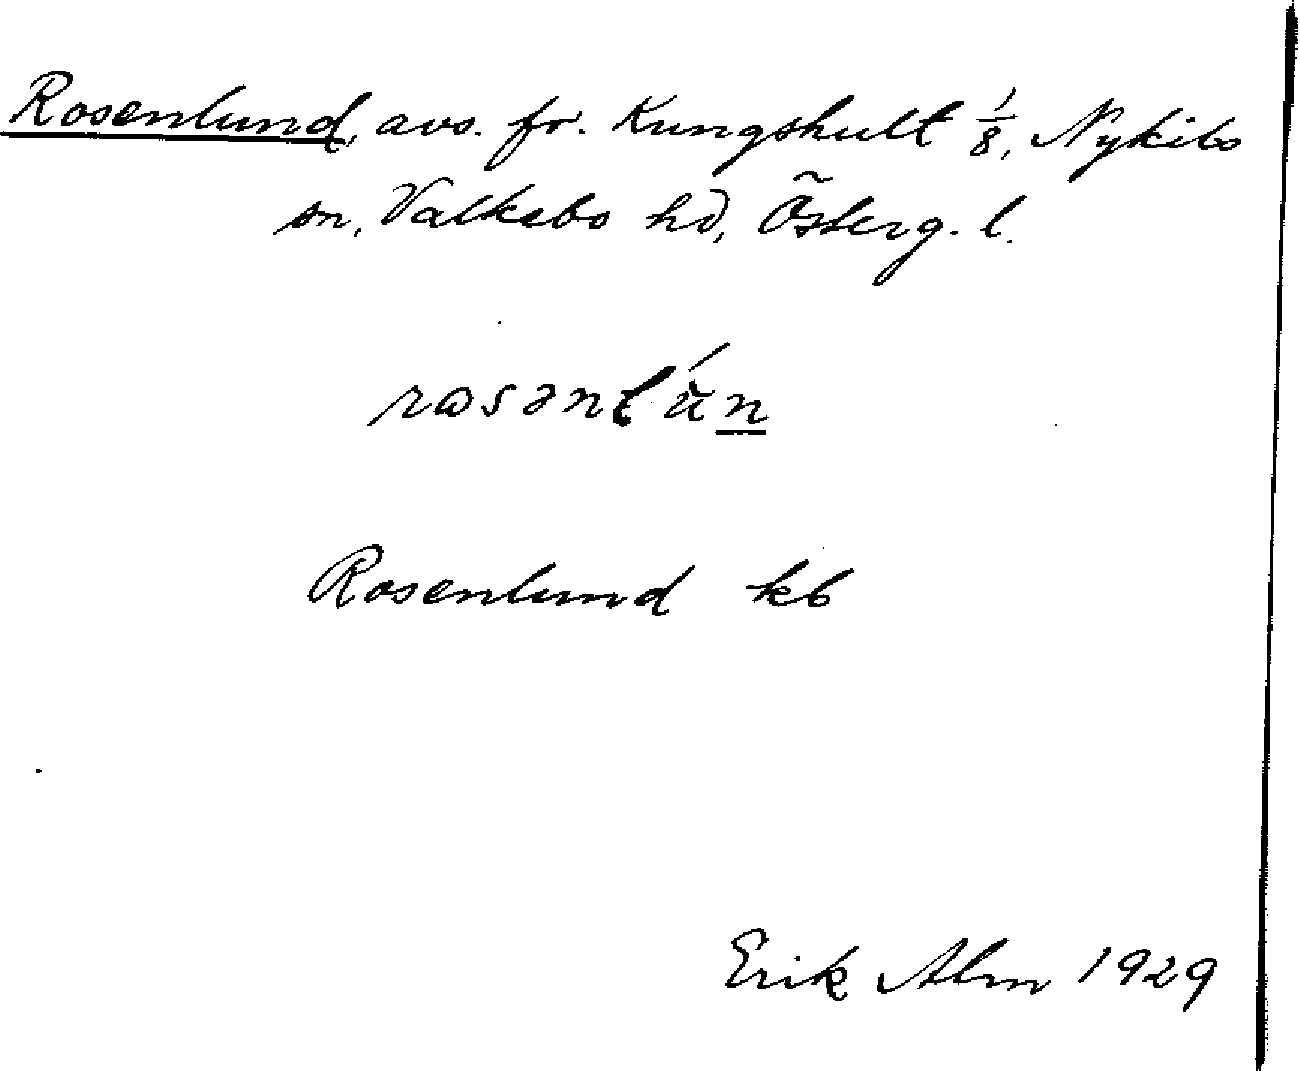 Rosenlund, avs. fr. Kungshult 1/8, Nykils
sn, Valkebo hd, Österg. l.
rɷsənlún
Rosenlund kb
Erik Alm 1929